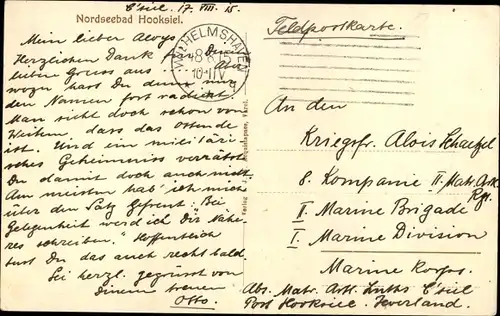 C'siel 17. VIII. 15.
Nordseebad Hooksiel.
Mein lieber Aloys,
Herzlichen Dank für Deinen
lieben Gruss aus ... Aber
wozu hast Du denn nur
den Namen fortradiert.
Man sieht doch schon von
Weitem, dass das Ostende
ist. Und ein militäri-
sches Geheimniss verrätst
Du damit doch auch nicht.
Am meisten hab' ich mich
über den Satz gefreut: "Bei
Gelegenheit werd ich Dir Nähe-
res schreiben." Hoffentlich
tust Du das auch recht bald.
Sei herzl. gegrüsst von
Deinem treuen
Otto.
WILHELMSHAVEN
10-11V
Verlag
Varel.
Feldpostkarte.
An den
Kriegsfr. Alois Schaefel
8. Kompanie II. Matr. Art.
Rgt.
I. Marine Brigade
I. Marine Division
Marine Korps.
Abs. Matr. Artl. C'siel
Post Hooksiel. Jeverland.